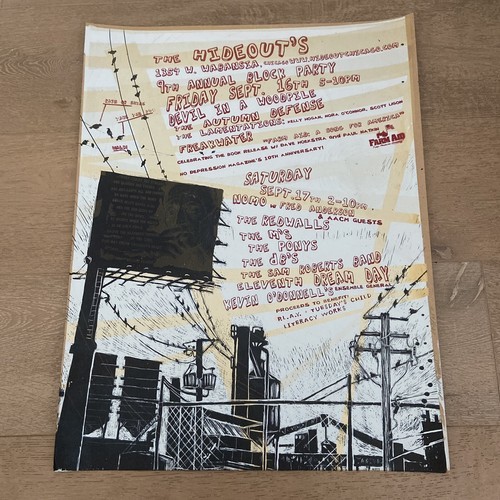 THE HIDEOUT'S
1354 W. WABANSIA, CHICAGO WWW.HIDEOUTCHICAGO.COM
9TH ANNUAL BLOCK PARTY
FRIDAY SEPT. 16TH 5-10PM
DEVIL IN A WOODPILE
THE AUTUMN DEFENSE
THE LAMENTATIONS: KELLY HOGAN, NORA O'CONNOR, SCOTT LIGON
FREAKWATER "FARM AID: A SONG FOR AMERICA"
CELEBRATING THE BOOK RELEASE W/ DAVE HOEKSTRA
NO DEPRESSION MAGAZINE'S 10TH ANNIVERSARY!
FARM AID
SATURDAY
SEPT. 17TH 2-10PM
NOMO W/ FRED ANDERSON
& AACM GUESTS
THE REDWALLS
THE M'S
THE PONYS
THE dB'S
THE SAM ROBERTS BAND
ELEVENTH DREAM DAY
KEVIN O'DONNELL'S ENSEMBLE GENERAL
PROCEEDS TO BENEFIT:
TUESDAY'S CHILD
LITERACY WORKS